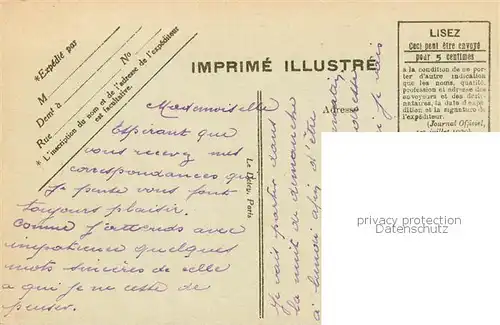 *Expédié par
M
Demt à
Rue
No
* L'inscription du nom et de l'adresse de l'expéditeur
est facultative.
IMPRIMÉ ILLUSTRÉ
Adresse
LISEZ
Ceci peut être envoyé
pour 5 centimes
à la condition de ne por-
ter d'autre indication
que les noms, qualité,
profession et adresse des
envoyeurs et des desti-
nataires, la date d'expé-
dition et la signature de
l'expéditeur.
(Journal Officiel,
Mademoiselle
Espérant que
vous recevez mes
correspondances qui
je pense vous font
toujours plaisir.
Comme j'attends avec
impatience quelques
mots sincères de celle
a qui je ne cesse de
penser.
Le Deley, Paris
Je vais partir dans
la nuit de dimanche
à lundi afin d'être
je vais
privacy protection
watermark